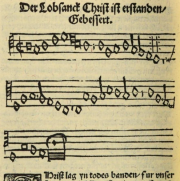 Der Lobsanck Christ ist erstanden/
Gebessert.
Christ lag yn todes banden/ fur vnser